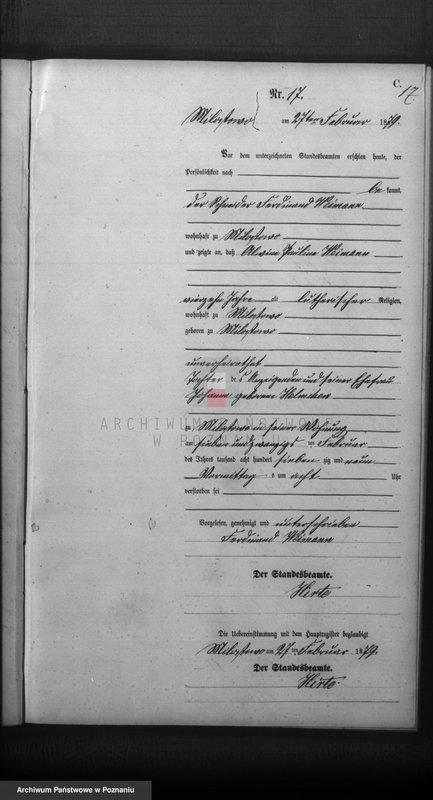 C.
17.
Nr. 17.
Milostowo am 27ten Februar 1879.
Vor dem unterzeichneten Standesbeamten erschien heute, der
Persönlichkeit nach
be kannt,
der Schneider Ferdinand Weimann
wohnhaft zu Milostowo
und zeigte an, daß Alwine Pauline Weimann
vierzehn Jahre alt lutherischer Religion,
wohnhaft zu Milostowo
geboren zu Milostowo
unverheirathet
Tochter des Anzeigenden und seiner Ehefrau
geborene
zu Milostowo in seiner Wohnung
am sieben und zwanzigsten Februar
des Jahres tausend acht hundert siebenzig und neun
Vormittag s um acht Uhr
verstorben sei
Vorgelesen, genehmigt und unterschrieben
Ferdinand Weimann
Der Standesbeamte.
Hirte
Die Uebereinstimmung mit dem Hauptregister beglaubigt
Milostowo am 27 ten Februar 1879.
Der Standesbeamte.
Hirte.
ARCHIWUM
W P
Archiwum Państwowe w Poznaniu